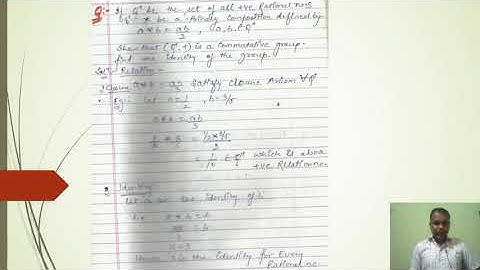 Q:- If Q⁺ be the set of all +ve Rational no.s
& * be a Binary composition defined by
a * b = ab/3 , a,b ∈ Q⁺
Show that (Q⁺, *) is a commutative group.
find the identity of the group.
Solⁿ: Relation -
a * b = ab/3 satisfy closure Axiom ∀ Q⁺
Let a = 1/2 , b = 3/5
a * b = ab/3
1/2 * 3/5 = 1/2 × 3/5 / 3
= 1/10 ∈ Q⁺ which is also a
+ve Rational no.
2. Identity
Let a be the identity of b
i.e. a * b = b
ab/3 = b
a = 3
Hence 3 is the identity for Every
Rational no.